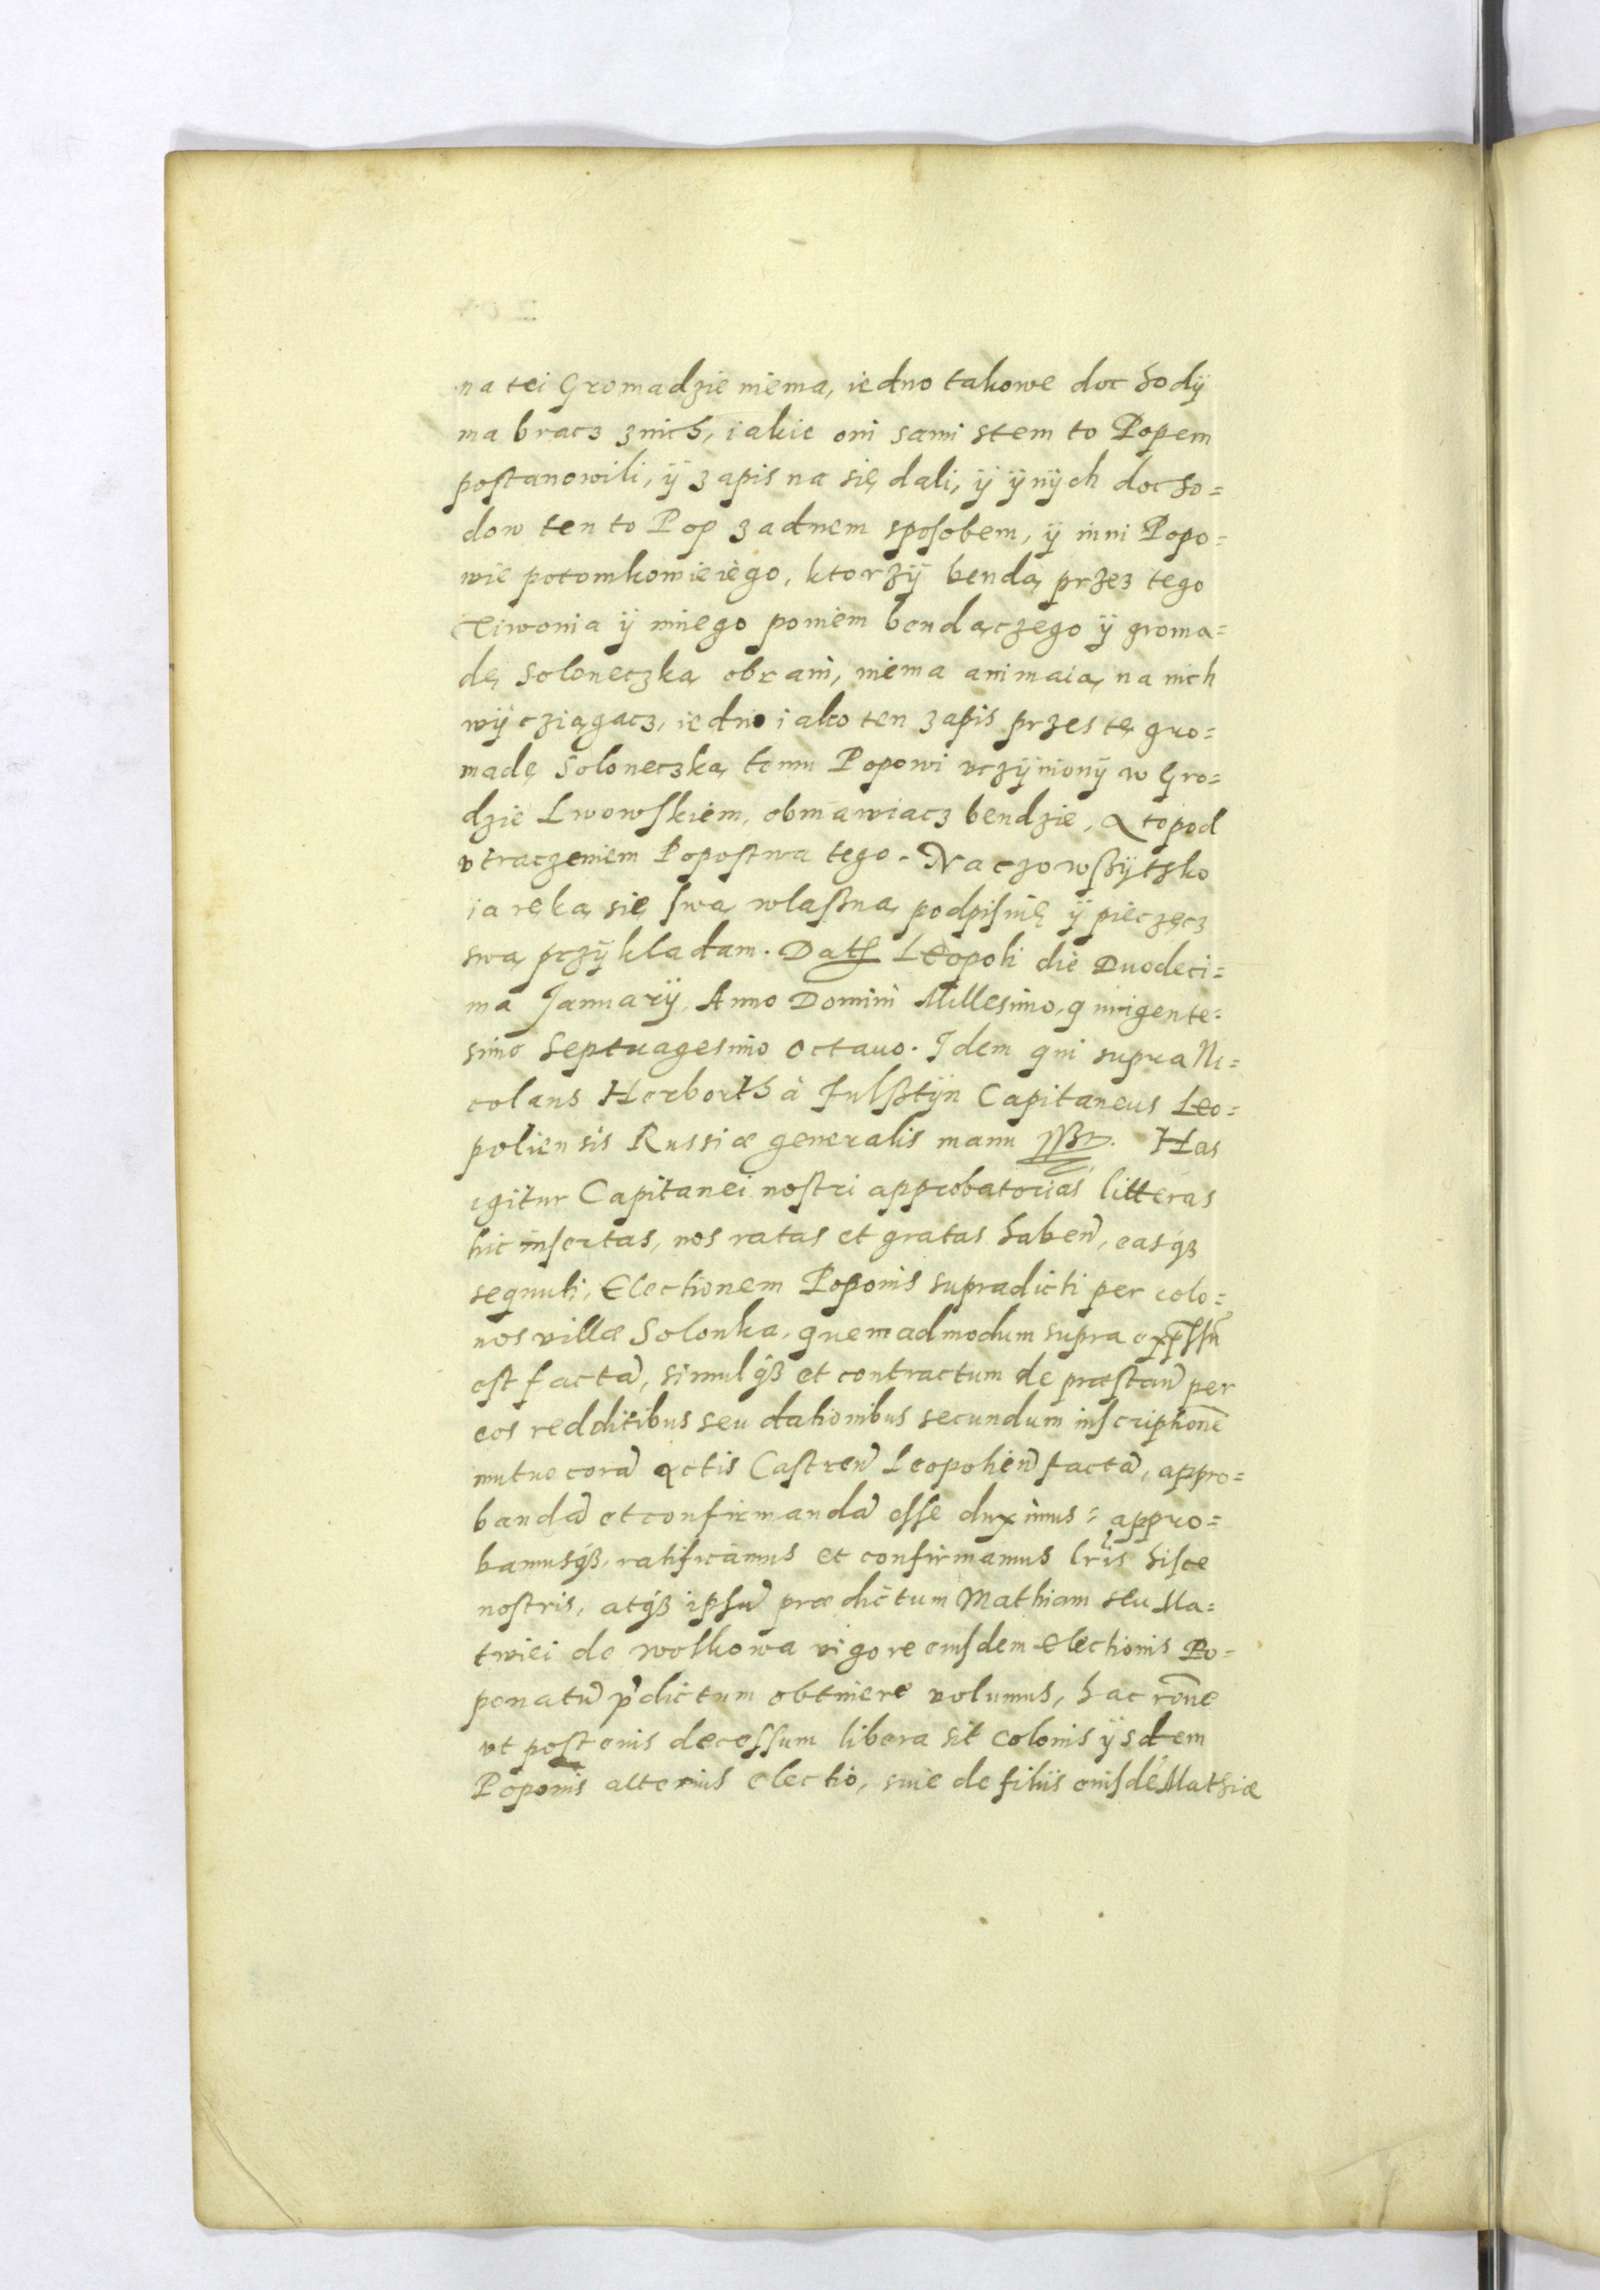 na tei Gromadzie niema, iedno takowe dochodÿ
ma bracz znich, iakie oni sami stem to Popem
postanowili, ÿ zapis na się dali, ÿ ÿnÿch docho=
dow ten to Pop zadnem sposobem, ÿ inni Popo=
wie potomkowie iego, ktorzÿ bendą przez tego
Ciwonia ÿ innego poniem bendączego ÿ groma=
dę Soloneczką obrani, niema ani maią na nich
wÿcziągacz, iedno iako ten zapis przes tę gro=
madę Soloneczką temu Popowi vczÿnionÿ w Gro=
dzie Lwowskiem, obmawiacz bendzie, A to pod
vtraczeniem Popostwa tego. Na czo wßÿtzko
ia ręką się swą wlaßną podpisuię ÿ pieczęcz
swą przÿkladam. Dat̃ Leopoli die Duodeci=
ma Januarÿ, Anno Domini Millesimo, quingente=
simo Septuagesimo octauo. Idem qui supra Ni=
colaus Herborth à Fulßtÿn Capitaneus Leo=
poliensis Russiæ generalis manu ppa. Has
igitur Capitanei nostri approbatorias litteras
hic insertas, nos ratas et gratas haben̄, easqꝫ
sequuti, Electionem Poponis supradicti per colo=
nos villæ Solonka, quemadmodum supra exp̄ssū
est factā, simulqꝫ et contractum de præstan̄ per
eos redditibus seu dationibus secundum inscriptionē
mutuo corā actis Castren̄ Leopolien̄ factā, appro=
bandā et confirmandā esse duximus: appro=
bamusqꝫ, ratificamus et confirmamus lr̄is hisce
nostris, atqꝫ ipsū prædictum Mathiam seu Ma=
twiei de Wolkowa vigore eiusdem electionis Po=
ponatū p̄dictum obtinere volumus, hac rōne
vt post eius decessum libera sit colonis ÿsdem
Poponis alterius electio, siue de filiis eiusdē Mathiæ